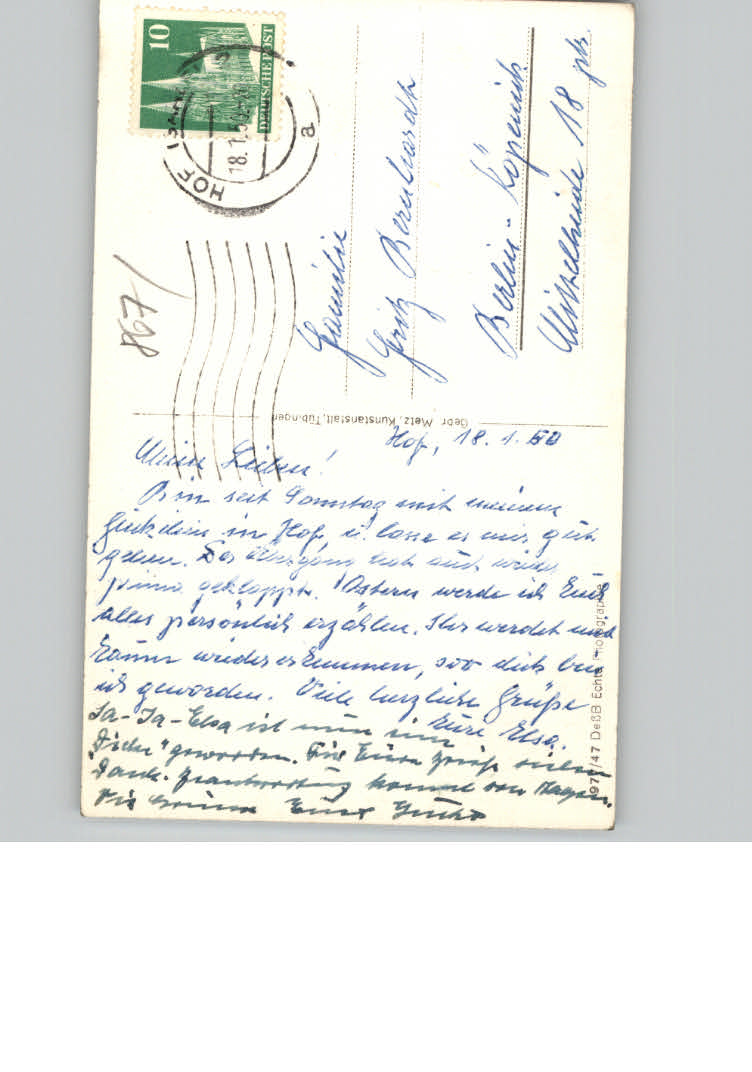 10
DEUTSCHE POST
HOF (SAALE)
18.1.50
a
867/
Familie
Fritz Bernhardt
Berlin-Köpenick
Mittelheide 18 ptr
Gebr. Metz, Kunstanstalt, Tübingen
Hof, 18.1.50
Meine Lieben!
Bin seit Sonntag mit meinem
in Hof, u. lasse es mir gut
gehen. Der hat auch wieder
prima geklappt. Ostern werde ich Euch
alles persönlich erzählen. Ihr werdet mich
kaum wiedererkennen, soo dick bin
ich geworden. Viele herzliche Grüße
Eure Elsa.
Ja-Ja-Elsa ist nun eine
"Dicke" geworden. Für Eure Grüße vielen
Dank. komme von
Eurer
/47 DeßB Echte Photographie